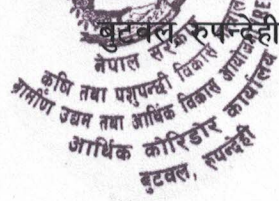 बुटवल, रुपन्देही
नेपाल सरकार
कृषि तथा पशुपन्छी विकास
ग्रामीण उद्यम तथा आर्थिक विकास आयोजना
आर्थिक कोरिडोर कार्यालय
बुटवल, रुपन्देही